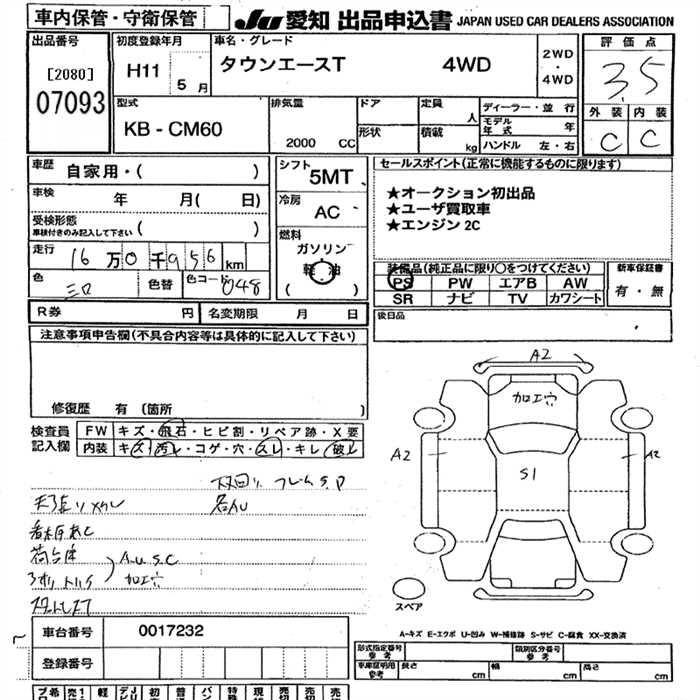 車内保管・守衛保管
JU 愛知 出品申込書 JAPAN USED CAR DEALERS ASSOCIATION
出品番号
[2080]
07093
初度登録年月
H11 5 月
車名・グレード
タウンエースT 4WD
2WD
・
4WD
評価点
3.5
外装 内装
C C
型式
KB - CM60
排気量
2000 CC
ドア
形状
定員
人
積載
kg
ディーラー・並 行
モデル
年 式 年
ハンドル 左・右
車歴 自家用・( )
車検 年 月( 日)
受検形態
車検付きのみ記入して下さい ( )
走行 16 万 0 千 956 km
色 色替 色コード 048
シフト
5MT
冷房
AC
燃料
ガソリン
軽 油
( )
セールスポイント(正常に機能するものに限ります)
★オークション初出品
★ユーザ買取車
★エンジン 2C
装備品(純正品に限り○をつけてください)
PS PW エアB AW
SR ナビ TV カワシート
新車保証書
有・無
R券 円 名変期限 月 日
後日品
注意事項申告欄(不具合内容等は具体的に記入して下さい)
修復歴 有 (箇所 )
検査員
記入欄
FW キズ・飛石・ヒビ割・リペア跡・X要
内装 キズ・汚レ・コゲ・穴・スレ・キレ・破レ
A.U.S.C
加工穴
A2
加工穴
A2
S1
A2
スペア
A-キズ E-エクボ U-凹み W-補修跡 S-サビ C-腐食 XX-交換済
車台番号 0017232
登録番号
形式指定番号
参 考
類別区分番号
参 考
車庫証明用
参 考
長さ cm 幅 cm 高さ cm